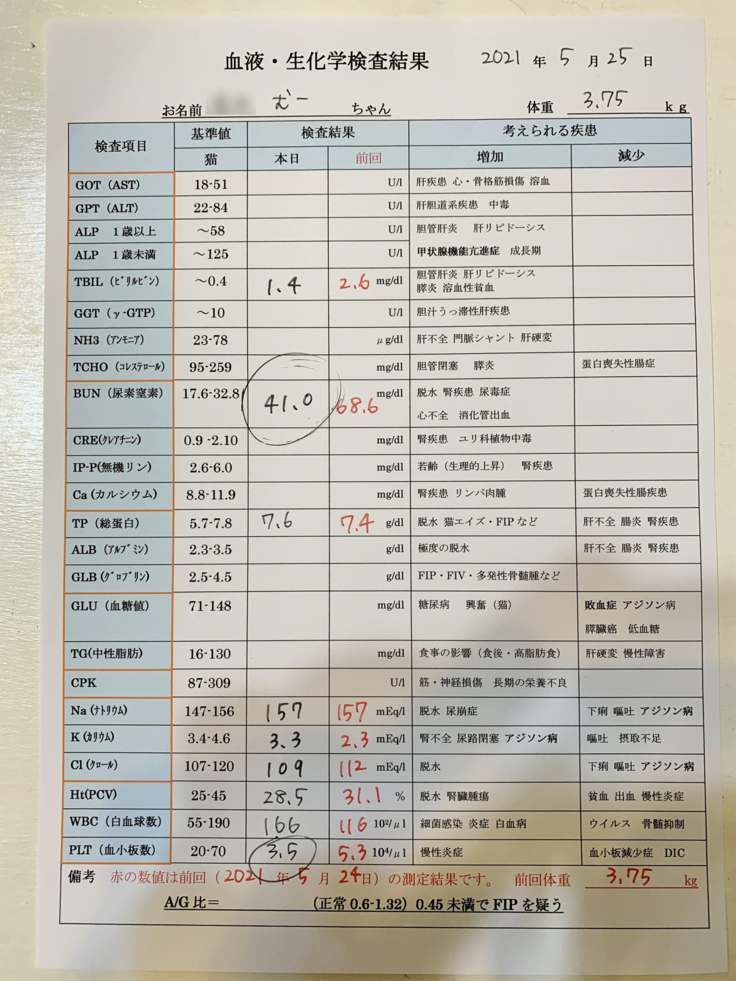 血液・生化学検査結果 2021 年 5 月 25 日
お名前 むー ちゃん 体重 3.75 kg
検査項目 基準値 検査結果 考えられる疾患
猫 本日 前回 増加 減少
GOT (AST) 18-51 U/l 肝疾患 心・骨格筋損傷 溶血
GPT (ALT) 22-84 U/l 肝胆道系疾患 中毒
ALP 1歳以上 ～58 U/l 胆管肝炎 肝リピドーシス
ALP 1歳未満 ～125 U/l 甲状腺機能亢進症 成長期
TBIL (ﾋﾞﾘﾙﾋﾞﾝ) ～0.4 1.4 2.6 mg/dl 胆管肝炎 肝リピドーシス
膵炎 溶血性貧血
GGT (γ-GTP) ～10 U/l 胆汁うっ滞性肝疾患
NH3 (ｱﾝﾓﾆｱ) 23-78 μg/dl 肝不全 門脈シャント 肝硬変
TCHO (ｺﾚｽﾃﾛｰﾙ) 95-259 mg/dl 胆管閉塞 膵炎 蛋白喪失性腸症
BUN (尿素窒素) 17.6-32.8 41.0 68.6 mg/dl 脱水 腎疾患 尿毒症
心不全 消化管出血
CRE(ｸﾚｱﾁﾆﾝ) 0.9-2.10 mg/dl 腎疾患 ユリ科植物中毒
IP-P(無機リン) 2.6-6.0 mg/dl 若齢（生理的上昇） 腎疾患
Ca (カルシウム) 8.8-11.9 mg/dl 腎疾患 リンパ肉腫 蛋白喪失性腸疾患
TP (総蛋白) 5.7-7.8 7.6 7.4 g/dl 脱水 猫エイズ・FIPなど 肝不全 腸炎 腎疾患
ALB (ｱﾙﾌﾞﾐﾝ) 2.3-3.5 g/dl 極度の脱水 肝不全 腸炎 腎疾患
GLB (ｸﾞﾛﾌﾞﾘﾝ) 2.5-4.5 g/dl FIP・FIV・多発性骨髄腫など
GLU (血糖値) 71-148 mg/dl 糖尿病 興奮（猫） 敗血症 アジソン病
膵臓癌 低血糖
TG(中性脂肪) 16-130 mg/dl 食事の影響（食後・高脂肪食） 肝硬変 慢性障害
CPK 87-309 U/l 筋・神経損傷 長期の栄養不良
Na (ﾅﾄﾘｳﾑ) 147-156 157 157 mEq/l 脱水 尿崩症 下痢 嘔吐 アジソン病
K (ｶﾘｳﾑ) 3.4-4.6 3.3 2.3 mEq/l 腎不全 尿路閉塞 アジソン病 嘔吐 摂取不足
Cl (ｸﾛｰﾙ) 107-120 109 112 mEq/l 脱水 下痢 嘔吐 アジソン病
Ht(PCV) 25-45 28.5 31.1 % 脱水 腎臓腫瘍 貧血 出血 慢性炎症
WBC (白血球数) 55-190 166 116 10²/μl 細菌感染 炎症 白血病 ウイルス 骨髄抑制
PLT (血小板数) 20-70 3.5 5.3 10⁴/μl 慢性炎症 血小板減少症 DIC
備考 赤の数値は前回（2021 年 5 月 24 日）の測定結果です。 前回体重 3.75 kg
A/G 比＝ （正常 0.6-1.32）0.45 未満で FIP を疑う